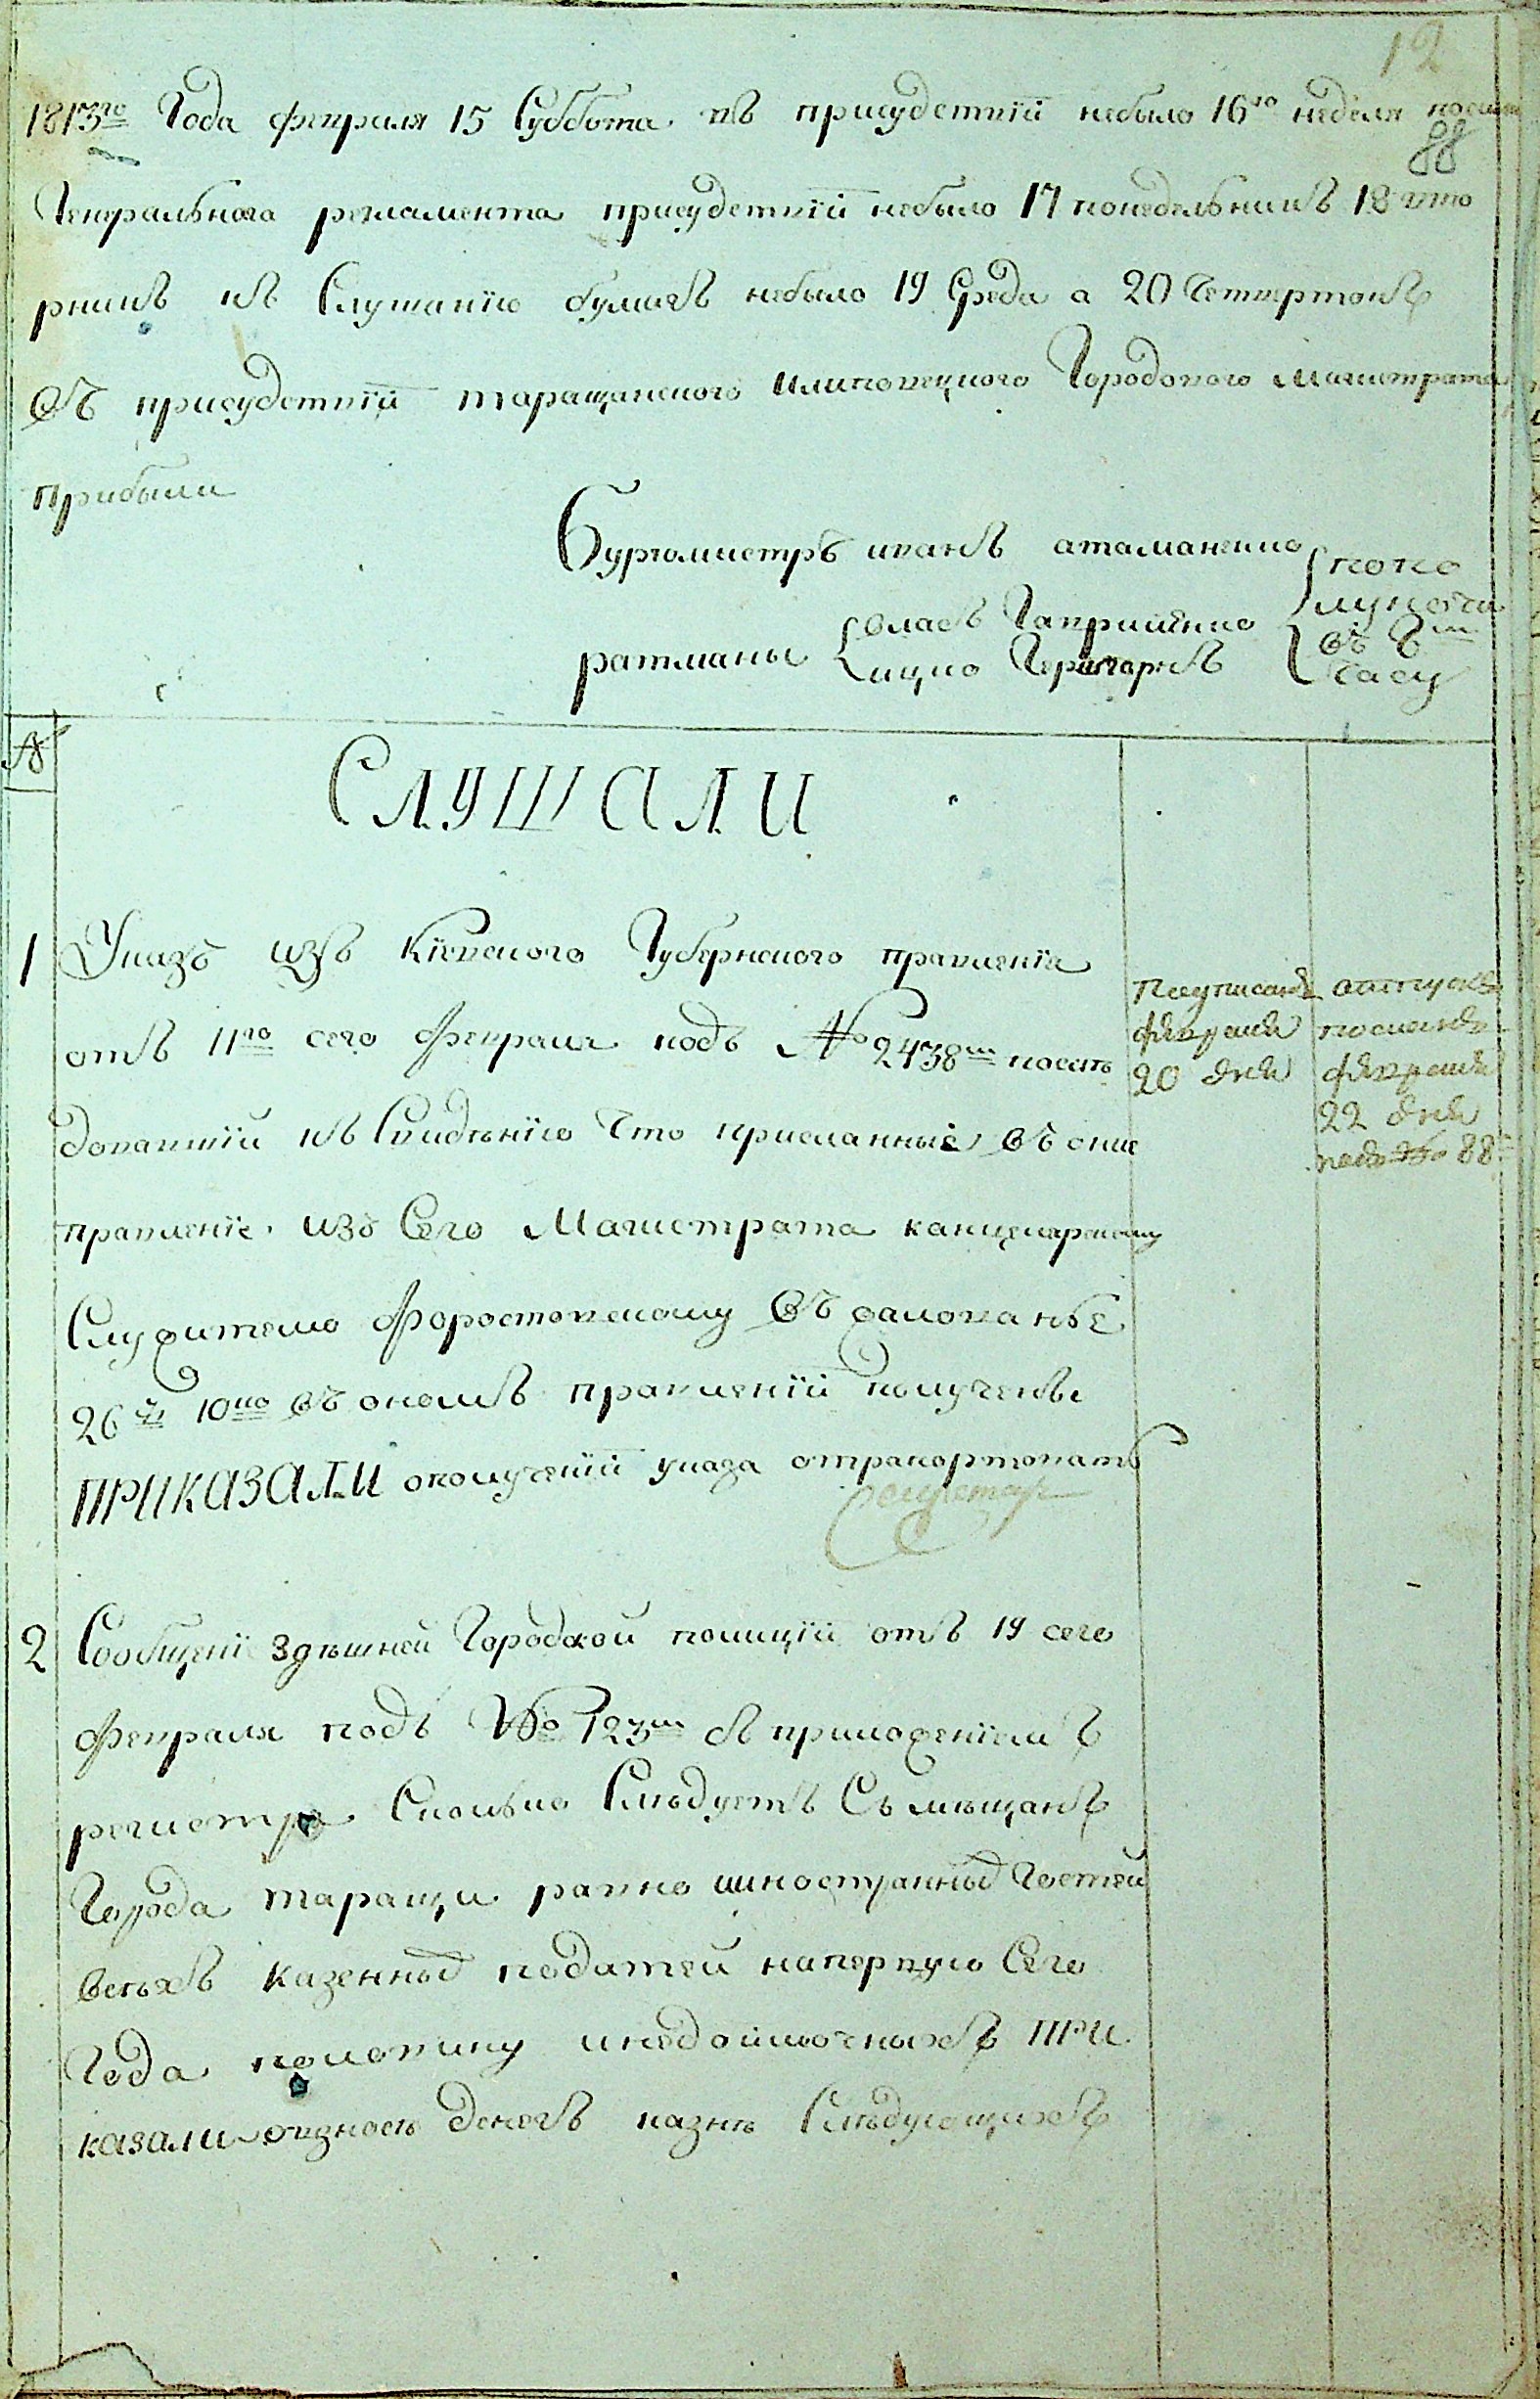 12
1813го Года февраля 15 Суббота въ присудствїи небыло 16го неделя по силе
88
Генеральнаго регламента присудствїи небыло 17 понедельникъ 18 вто
рникъ къ Слушанїю бумагъ небыло 19 Среда а 20 Четвертокъ
въ присудствїи таращанского Городового Магистрата
прибыли
Бургомистръ иванъ атаманенко
пополу
луночи
ратманы
власъ Гаприїенко
въ 8м
ицко
Часу
№
СЛУШАЛИ
1 Указъ изъ Кїевского Губернского правленїя
отъ 11го сего февраля подъ №2438м после
довавшїй къ Свидѣнїю Что присланные въ оние
правленїе изъ Сего Магистрата канцелярскому
Служителю Форостовскому въ жалованье
26 10ко въ ономъ правленїи получены
ПРИКАЗАЛИ ополученїи указа отрапортовать
Секретарь
Подписана
февраля
20 дня
отпускъ
посланъ
февраля
22 дня
подъ № 88
2 Сообщенї здѣшней Городской полицїи отъ 19 сего
февраля подъ №123м съ приложенїемъ
регистра Сколько Слѣдуетъ Съ мѣщанъ
Города таращи равно иностранныхъ Гостей
всѣхъ казенныхъ податей напервую Сего
Года половину инедоимочныхъ ПРИ
казали овзносѣ денегъ казнѣ Слѣдующихъ